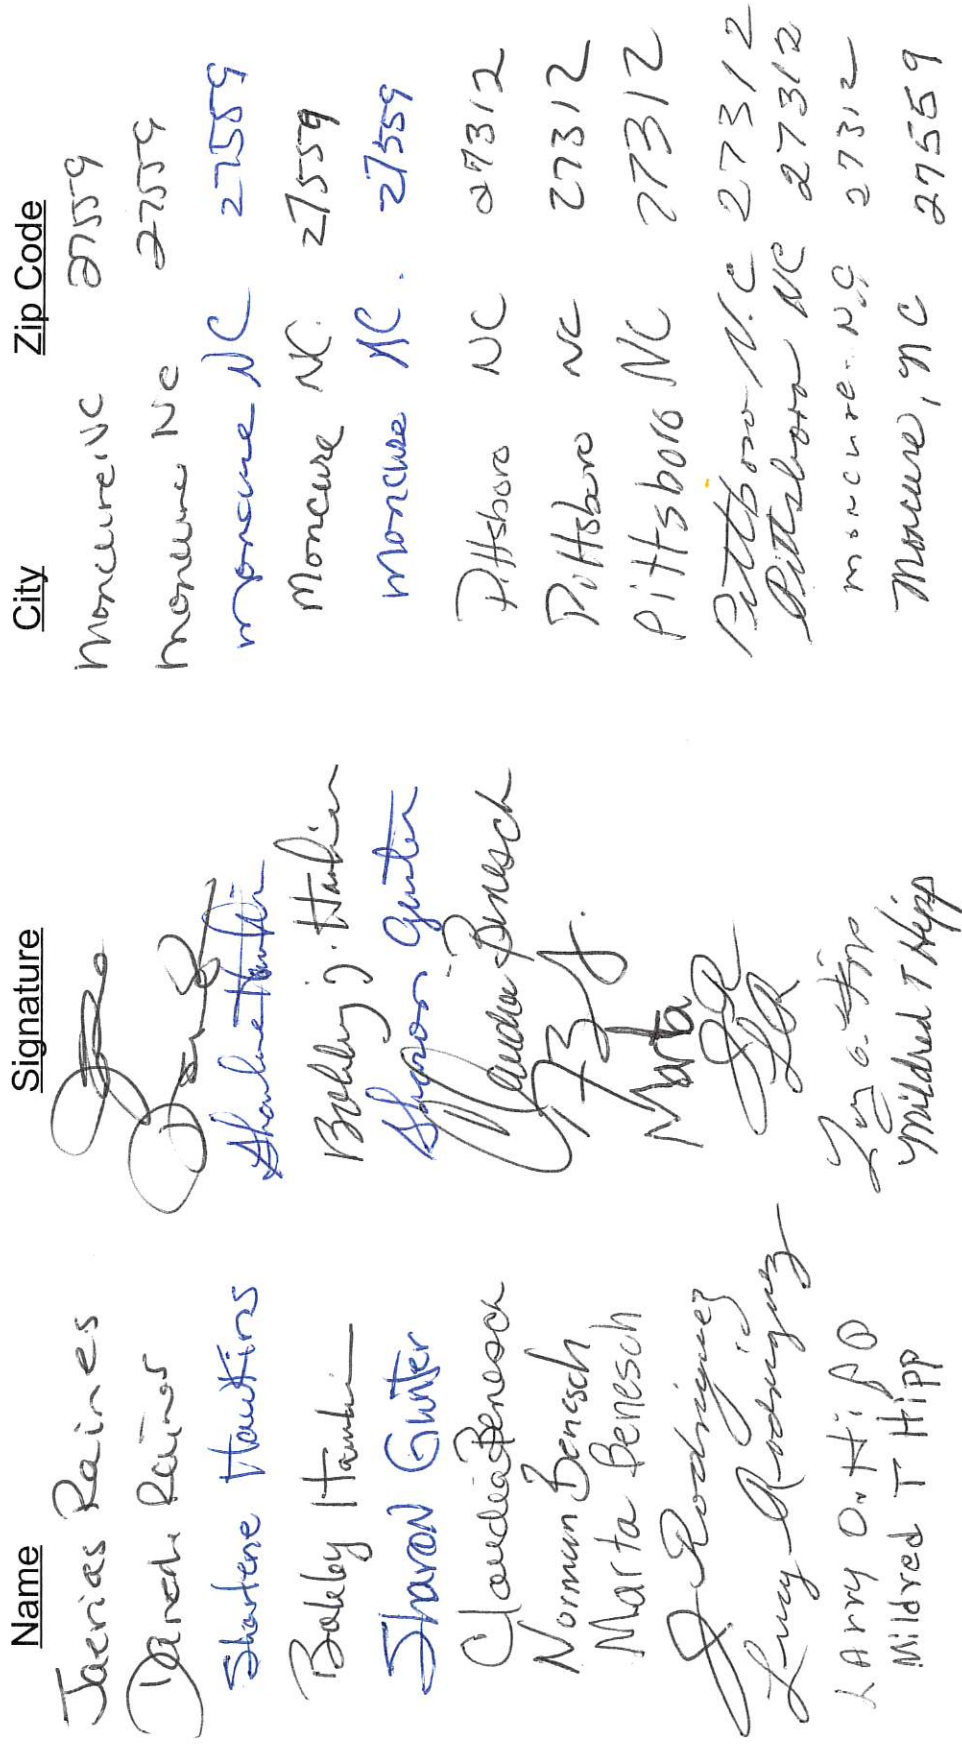 Name Signature City Zip Code
Jaerias Raines Moncure NC 27559
Raines Moncure NC 27559
Sharlene Hawkins Sharlene Hawkins Moncure NC 27559
Bobby Bobby J. Moncure NC. 27559
Sharon Gunter Sharon Gunter Moncure NC. 27559
Claudia Benesch Claudia Benesch Pittsboro NC 27312
Norman Benesch Pittsboro NC 27312
Marta Benesch Marta Pittsboro NC 27312
J Rodriguez JR Pittsboro N.C 27312
Lucy Rodriguez LR Pittsboro NC 27312
LARRY O. Hipp moncure. NC 27312
Mildred T Hipp Mildred T Hipp Moncure, NC 27559